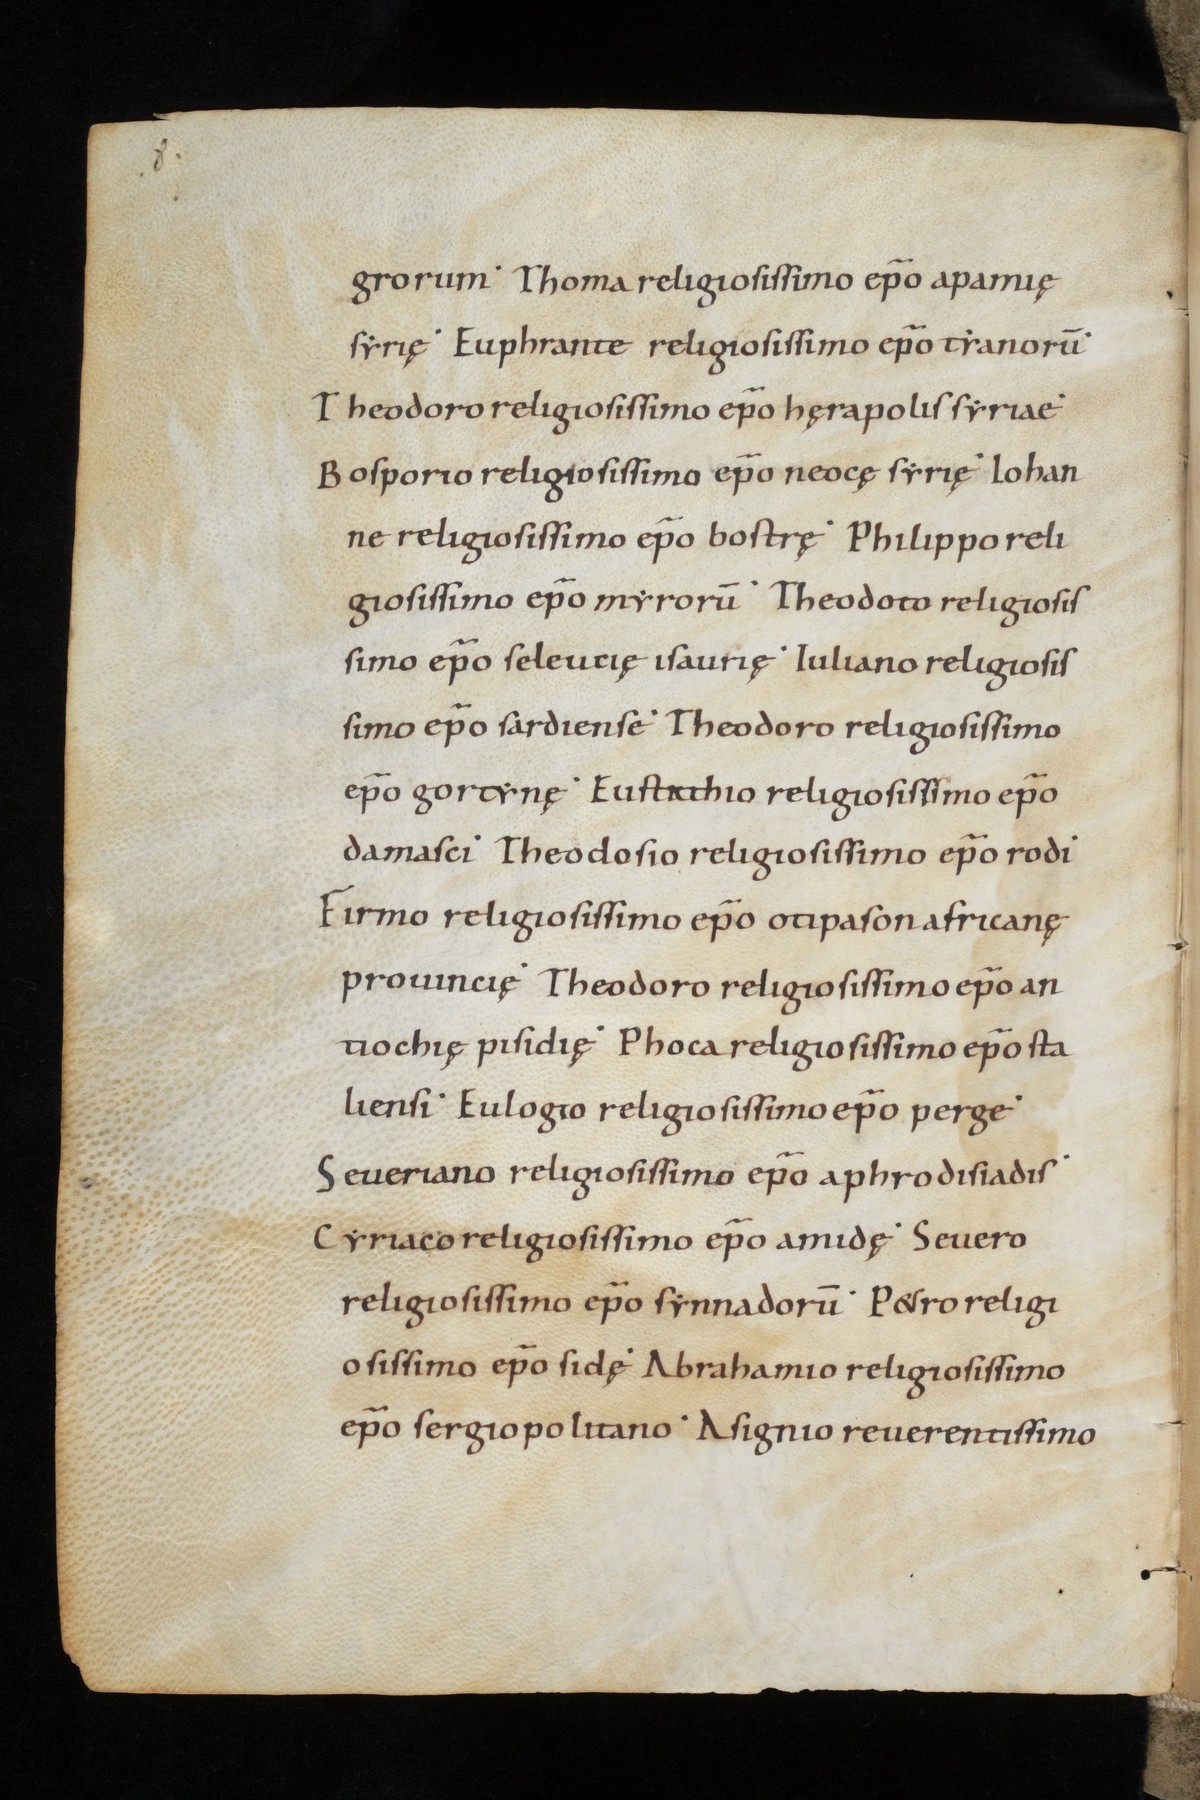 8.
grorum· Thoma religiosissimo ep̃o apamię
sẏrię· Euphrante religiosissimo ep̃o tẏanorū·
Theodoro religiosissimo ep̃o hęrapolis sẏriae·
Bosporio religiosissimo ep̃o neocę sẏrię· Iohan
ne religiosissimo ep̃o bostrę· Philippo reli
giosissimo ep̃o mẏrorū· Theodoto religiosis
simo ep̃o seleucię isaurię· Iuliano religiosis
simo ep̃o sardiense· Theodoro religiosissimo
ep̃o gortẏnę· Eustathio religiosissimo ep̃o
damasci· Theodosio religiosissimo ep̃o rodi·
Firmo religiosissimo ep̃o otipason africanę
prouincię· Theodoro religiosissimo ep̃o an
tiochię pisidię· Phoca religiosissimo ep̃o sta
liensi· Eulogio religiosissimo ep̃o perge·
Seueriano religiosissimo ep̃o aphrodisiadis·
Cẏriaco religiosissimo ep̃o amidę· Seuero
religiosissimo ep̃o sẏnnadorū· P&ro religi
osissimo ep̃o sidę· Abrahamio religiosissimo
ep̃o sergiopolitano· Asignio reuerentissimo